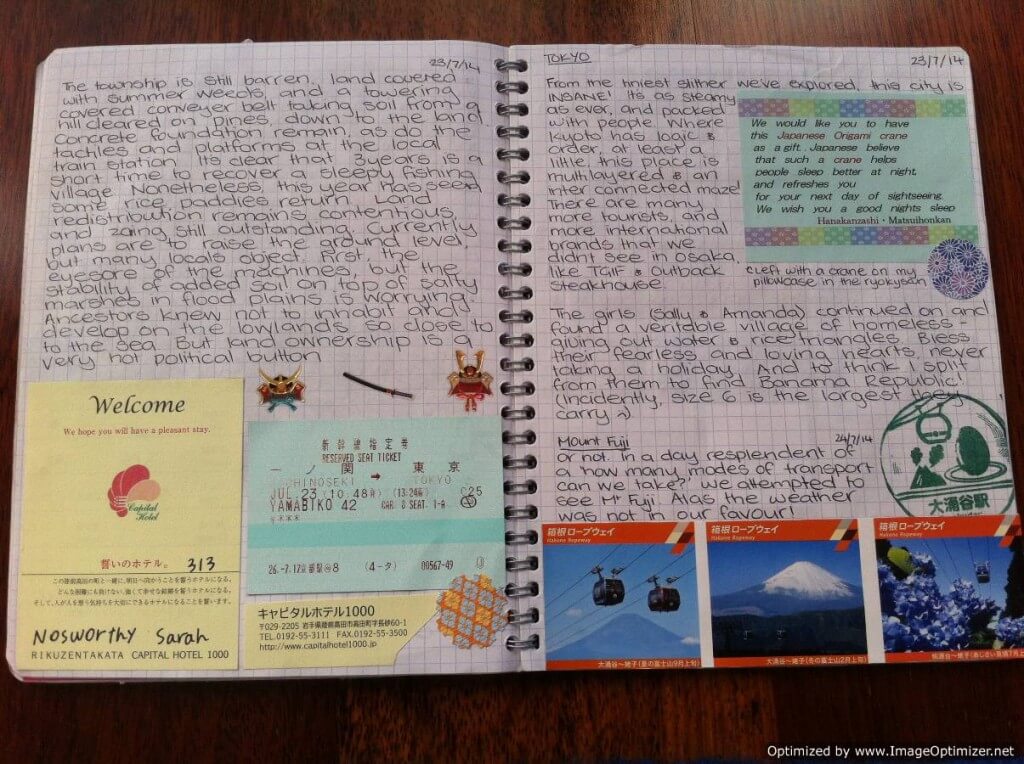 23/7/14
The township is still barren, land covered
with summer weeds, and a towering
covered conveyer belt taking soil from a
hill cleared on pines, down to the land.
Concrete foundation remain, as do the
tactiles and platforms at the local
train station. Its clear that 3 years is a
short time to recover a sleepy fishing
village. Nonetheless, this year has seen
some rice paddies return. Land
redistribution remains contentious,
and zoning still outstanding. Currently
plans are to raise the ground level
but many locals object. First, the
eyesore of the machines, but the
stability of added soil on top of salty
marshes in flood plains is worrying.
Ancestors knew not to inhabit and
develop on the lowlands, so close to
to the sea. But land ownership is a
very hot political button
Welcome
We hope you will have a pleasant stay.
Capital
Hotel
誓いのホテル。 313
この陸前高田の町と一緒に、明日へ向かうことを誓うホテルになる。
どんな困難にも負けない、強くて幸せな結婚を誓うホテルになる。
そして、人が人を想う気持ちを大切にできるホテルになることを誓います。
Nosworthy Sarah
RIKUZENTAKATA CAPITAL HOTEL 1000
新幹線指定券
RESERVED SEAT TICKET
一ノ関 → 東京
ICHINOSEKI TOKYO
JUL.23 (10:48発) (13:24着) C25
YAMABIKO 42 CAR. 8 SEAT. 1-A
26.-7.17 (4-タ) 00567-49
キャピタルホテル1000
〒029-2205 岩手県陸前高田市高田町字長砂60-1
TEL.0192-55-3111 FAX.0192-55-3500
http://www.capitalhotel1000.jp
TOKYO 23/7/14
From the tiniest slither we've explored, this city is
INSANE! Its as steamy
as ever, and packed
with people. Where
Kyoto has logic &
order, at least a
little, this place is
multilayered & an
inter connected maze!
There are many
more tourists, and
more international
brands that we
didnt see in Osaka,
like TGIF & Outback
Steakhouse.
We would like you to have
this Japanese Origami crane
as a gift. Japanese believe
that such a crane helps
people sleep better at night,
and refreshes you
for your next day of sightseeing.
We wish you a good nights sleep
Hanakanzashi・Matsuihonkan
left with a crane on my
pillowcase in the ryokysan
The girls (Sally & Amanda) continued on and
found a veritable village of homeless -
giving out water & rice triangles. Bless
their fearless and loving hearts, never
taking a holiday. And to think I split
from them to find Banana Republic!
(Incidently, size 6 is the largest they
carry :)
Mount Fuji 24/7/14
or not. In a day resplendent of
a 'how many modes of transport
can we take?' we attempted to
see Mt Fuji. Alas the weather
was not in our favour!
大涌谷駅
箱根ロープウェイ
Hakone Ropeway
大涌谷〜姥子(夏の富士山9月上旬)
箱根ロープウェイ
Hakone Ropeway
大涌谷〜姥子(冬の富士山2月上旬)
箱根ロープウェイ
Hakone Ropeway
Optimized by www.ImageOptimizer.net